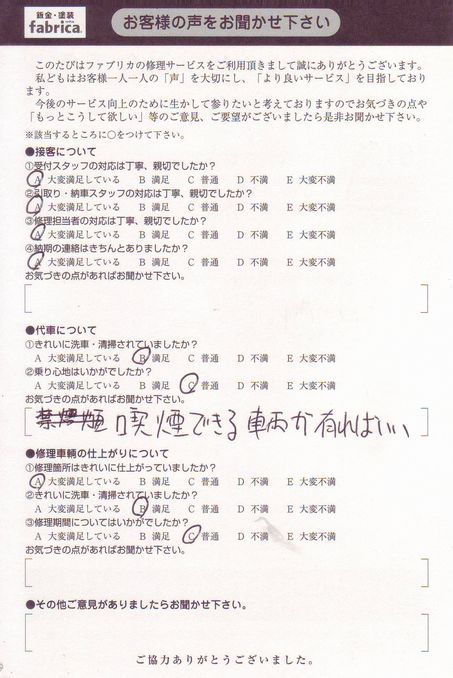 鈑金・塗装
fabrica.
お客様の声をお聞かせ下さい
このたびはファブリカの修理サービスをご利用頂きまして誠にありがとうございます。
私どもはお客様一人一人の「声」を大切にし、「より良いサービス」を目指しており
ます。
今後のサービス向上のために生かして参りたいと考えておりますのでお気づきの点や
「もっとこうして欲しい」等のご意見、ご要望がございましたら是非お聞かせ下さい。
※該当するところに○をつけて下さい。
●接客について
①受付スタッフの対応は丁寧、親切でしたか?
A 大変満足している B 満足 C 普通 D 不満 E 大変不満
②引取り・納車スタッフの対応は丁寧、親切でしたか?
A 大変満足している B 満足 C 普通 D 不満 E 大変不満
③修理担当者の対応は丁寧、親切でしたか?
A 大変満足している B 満足 C 普通 D 不満 E 大変不満
④納期の連絡はきちんとありましたか?
A 大変満足している B 満足 C 普通 D 不満 E 大変不満
お気づきの点があればお聞かせ下さい。
●代車について
①きれいに洗車・清掃されていましたか?
A 大変満足している B 満足 C 普通 D 不満 E 大変不満
②乗り心地はいかがでしたか?
A 大変満足している B 満足 C 普通 D 不満 E 大変不満
お気づきの点があればお聞かせ下さい。
喫煙できる車両が有ればいい
●修理車輌の仕上がりについて
①修理箇所はきれいに仕上がっていましたか?
A 大変満足している B 満足 C 普通 D 不満 E 大変不満
②きれいに洗車・清掃されていましたか?
A 大変満足している B 満足 C 普通 D 不満 E 大変不満
③修理期間についてはいかがでしたか?
A 大変満足している B 満足 C 普通 D 不満 E 大変不満
お気づきの点があればお聞かせ下さい。
●その他ご意見がありましたらお聞かせ下さい。
ご協力ありがとうございました。